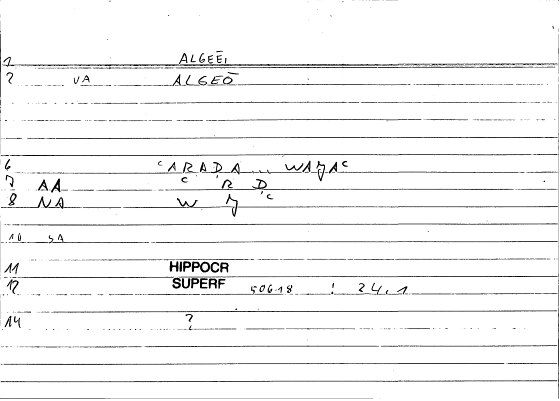 1 ALGEĒI
2 VA ALGEŌ
6 ʿARADA ... WAǦAʿ
7 AA ʿ R D
8 NA W Ǧ ʿ
10 SA
11 HIPPOCR
12 SUPERF 50618 ! 24.1
14 ?